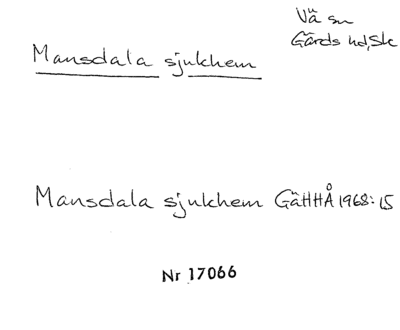 Vä sn
Gärds hd, Sk
Mansdala sjukhem
Mansdala sjukhem GäHHÅ 1968:15
Nr 17066